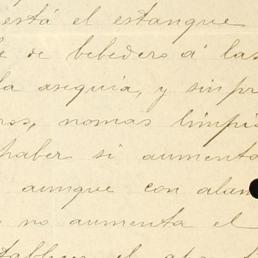 está el estanque
de bebedero á las
la asequia, y sin pr
ros, nomas limpia
haber si aumenta
aunque con alam
no aumenta el